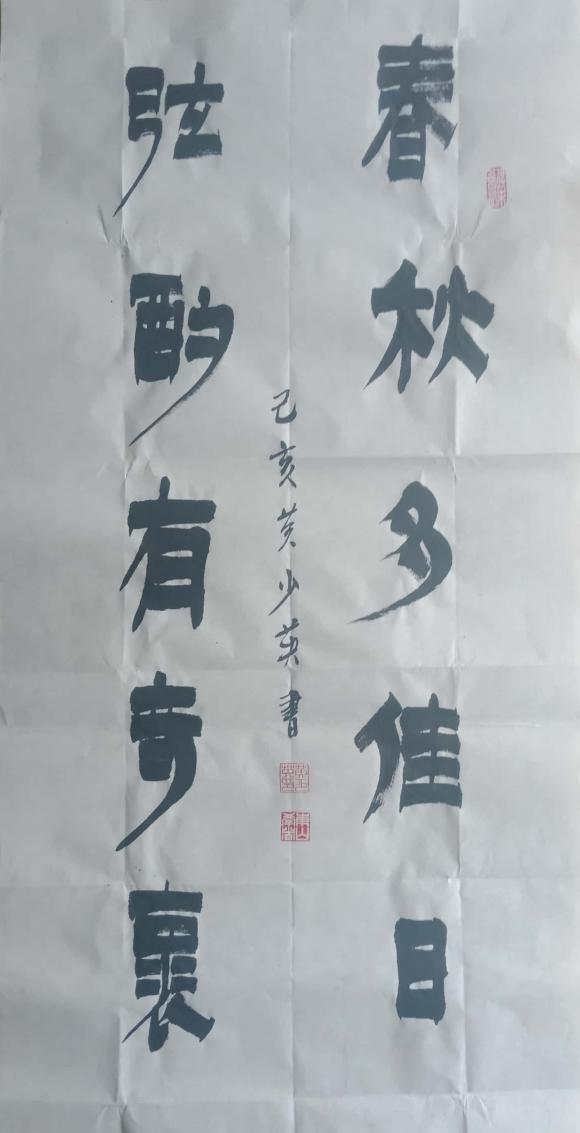 春秋多佳日
弦酌有奇裏
己亥黄少英書